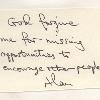 God forgive
me for missing
opportunities to
encourage other people
Alan